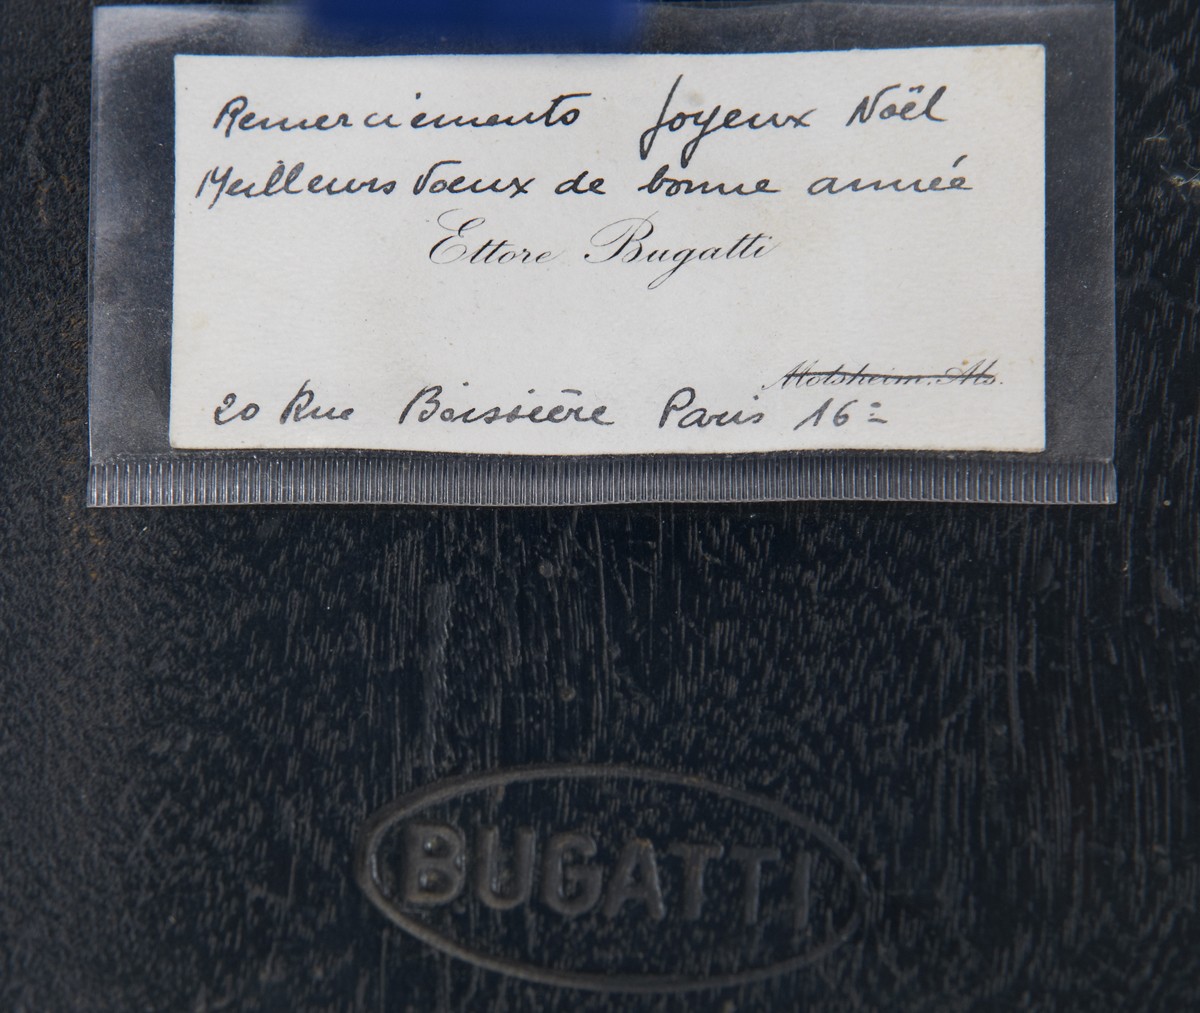 Remerciements Joyeux Noël
Meilleurs Voeux de bonne année
Ettore Bugatti
Molsheim. Als.
20 Rue Boissière Paris 16e
BUGATTI